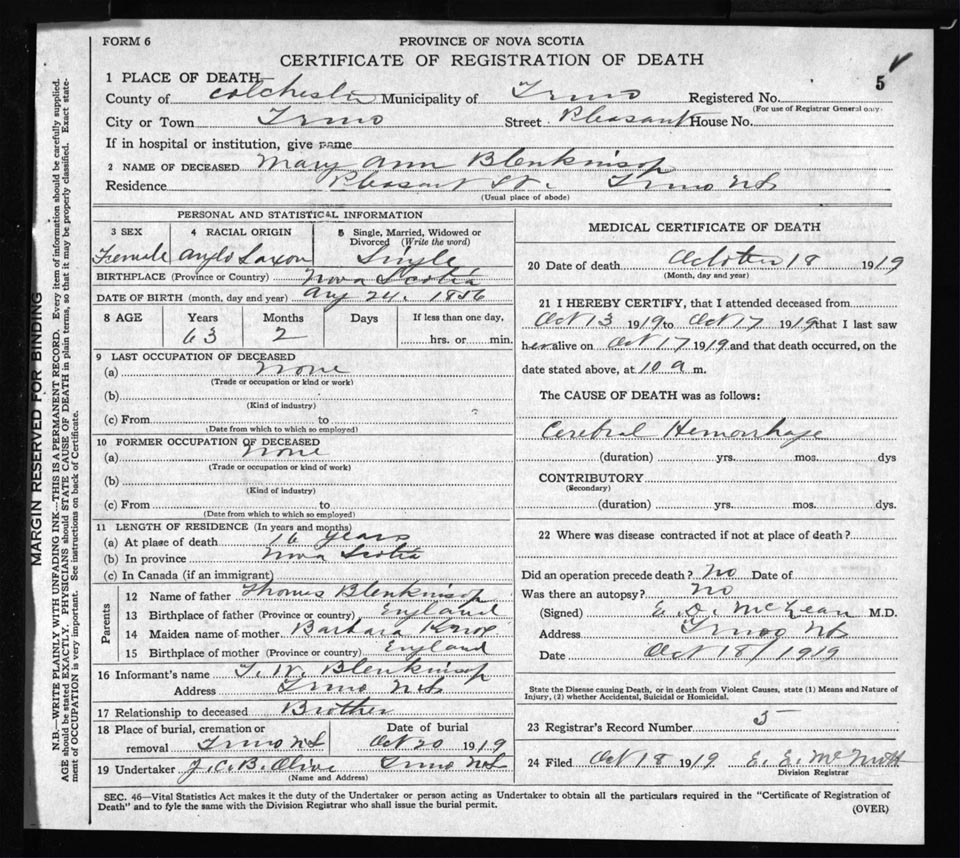 FORM 6
PROVINCE OF NOVA SCOTIA
CERTIFICATE OF REGISTRATION OF DEATH
5
1 PLACE OF DEATH
County of Colchester Municipality of Truro Registered No.
(For use of Registrar General only.)
City or Town Truro Street Pleasant House No.
If in hospital or institution, give name
2 NAME OF DECEASED Mary Ann Blenkinsop
Residence Pleasant St. Truro NS
(Usual place of abode)
PERSONAL AND STATISTICAL INFORMATION
3 SEX
Female
4 RACIAL ORIGIN
Anglo Saxon
5 Single, Married, Widowed or
Divorced (Write the word)
Single
BIRTHPLACE (Province or Country) Nova Scotia
DATE OF BIRTH (month, day and year) Aug 24, 1856
8 AGE Years Months Days If less than one day,
63 2 hrs. or min.
9 LAST OCCUPATION OF DECEASED
(a) none
(Trade or occupation or kind or work)
(b)
(Kind of industry)
(c) From to
(Date from which to which so employed)
10 FORMER OCCUPATION OF DECEASED
(a) none
(Trade or occupation or kind of work)
(b)
(Kind of industry)
(c) From to
(Date from which to which so employed)
11 LENGTH OF RESIDENCE (In years and months)
(a) At place of death 16 years
(b) In province Nova Scotia
(c) In Canada (if an immigrant)
Parents
12 Name of father Thomas Blenkinsop
13 Birthplace of father (Province or country) England
14 Maiden name of mother Barbara Knox
15 Birthplace of mother (Province or country) England
16 Informant's name T. W. Blenkinsop
Address Truro NS
17 Relationship to deceased Brother
18 Place of burial, cremation or
removal Truro NS
Date of burial
Oct 20 1919
19 Undertaker J. C. B. Olive Truro NS
(Name and Address)
MEDICAL CERTIFICATE OF DEATH
20 Date of death October 18 1919
(Month, day and year)
21 I HEREBY CERTIFY, that I attended deceased from
Oct 13 1919 to Oct 17 1919 that I last saw
her alive on Oct 17 1919 and that death occurred, on the
date stated above, at 10 a m.
The CAUSE OF DEATH was as follows:
Cerebral Hemorrhage
(duration) yrs. mos. dys
CONTRIBUTORY
(Secondary)
(duration) yrs. mos. dys.
22 Where was disease contracted if not at place of death?
Did an operation precede death? No Date of
Was there an autopsy? No
(Signed) E. D. McLean M.D.
Address Truro NS
Date Oct 18/1919
State the Disease causing Death, or in death from Violent Causes, state (1) Means and Nature of
Injury, (2) whether Accidental, Suicidal or Homicidal.
23 Registrar's Record Number 5
24 Filed Oct 18 1919 E. E. McNutt
Division Registrar
SEC. 46—Vital Statistics Act makes it the duty of the Undertaker or person acting as Undertaker to obtain all the particulars required in the "Certificate of Registration of
Death" and to fyle the same with the Division Registrar who shall issue the burial permit.
(OVER)
MARGIN RESERVED FOR BINDING
N.B.—WRITE PLAINLY WITH UNFADING INK—THIS IS A PERMANENT RECORD. Every item of information should be carefully supplied.
AGE should be stated EXACTLY. PHYSICIANS should STATE CAUSE OF DEATH in plain terms, so that it may be properly classified. Exact state-
ment of OCCUPATION is very important. See instructions on back of Certificate.